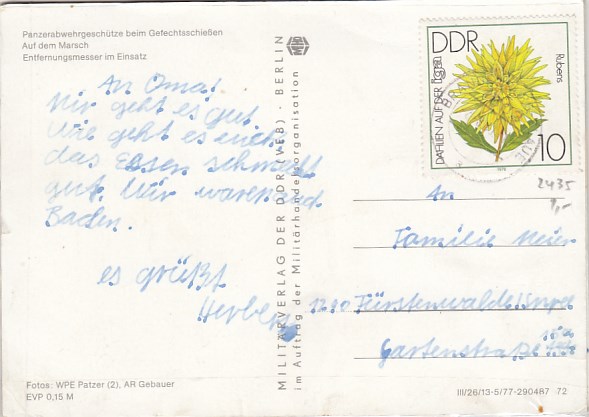 Panzerabwehrgeschütze beim Gefechtsschießen
Auf dem Marsch
Entfernungsmesser im Einsatz
An Oma!
Mir geht es gut
Wie geht es euch
das Essen schmeckt
gut. Wir waren
Baden.
es grüßt
Herbert
Fotos: WPE Patzer (2), AR Gebauer
EVP 0,15 M
MILITÄRVERLAG DER DDR (VEB) · BERLIN
im Auftrag der Militärhandelsorganisation
DDR
DAHLIEN AUF DER
Rubens
10
2435
1,-
An
Familie Meier
1240 Fürstenwalde/Spree
Gartenstraße
III/26/13-5/77-290487 72